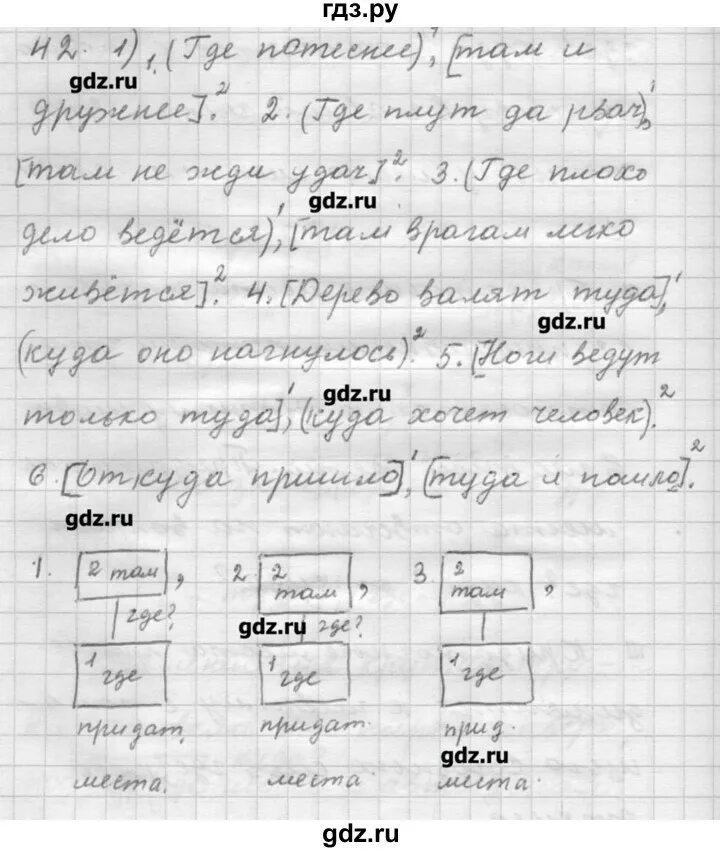 гдз.ру
42. 1) 1. (Где потеснее)¹, [там и
gdz.ru
дружнее]². 2. (Где плут да рвач)¹,
[там не жди удач]². 3. (Где плохо
gdz.ru
дело ведётся)¹, [там врагам легко
живётся]². 4. [Дерево валят туда]¹,
gdz.ru
(куда оно нагнулось)². 5. [Ноги ведут
gdz.ru
только туда]¹, (куда хочет человек)².
6. [Откуда пришло]¹, [туда и пошло]².
gdz.ru
1. 2 там, 2. 2 там, 3. 2 там,
где? gdz.ru где?
1 где 1 где 1 где
придат. придат. прид.
gdz.ru
места. места места.
gdz.ru